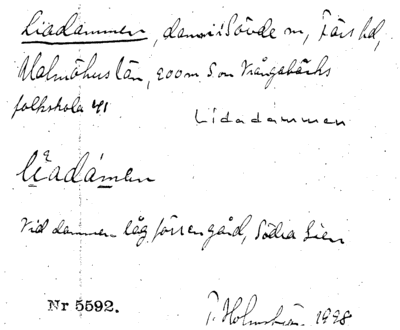 Liadammen, damm i Sövde sn, Färs hd,
Malmöhus län, 200 m S om Vrångabäcks
folkskola 41
Lidadammen
lįadámen
Vid dammen låg förr en gård, Södra Lien
Nr 5592.
T. Holmström, 1928